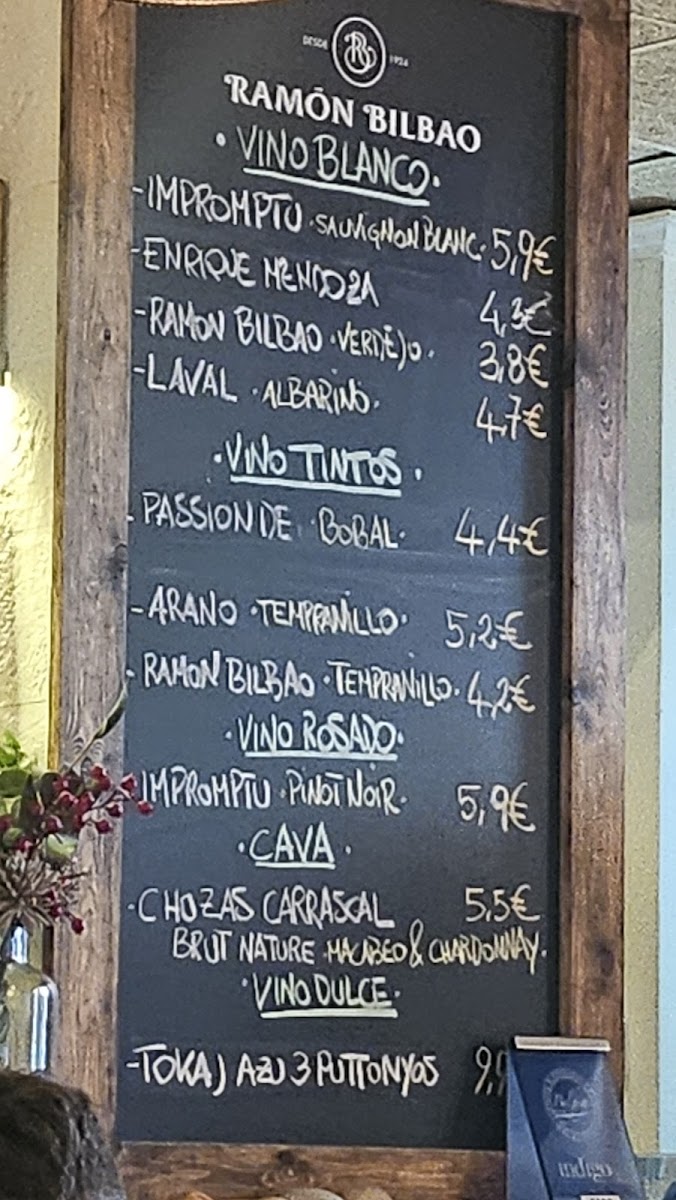 DESDE 1924
RAMÓN BILBAO
· VINO BLANCO ·
-IMPROMPTU · SAUVIGNON BLANC · 5,9€
-ENRIQUE MENDOZA 4,3€
-RAMON BILBAO · VERDEJO · 3,8€
-LAVAL · ALBARINO · 4,7€
· VINO TINTOS ·
- PASSION DE · BOBAL · 4,4€
- ARANO · TEMPRANILLO · 5,2€
- RAMON BILBAO · TEMPRANILLO · 4,2€
· VINO ROSADO ·
IMPROMPTU · PINOT NOIR · 5,9€
· CAVA ·
-CHOZAS CARRASCAL 5,5€
BRUT NATURE · MACABEO & CHARDONNAY ·
· VINO DULCE ·
-TOKAJ AZU 3 PUTTONYOS